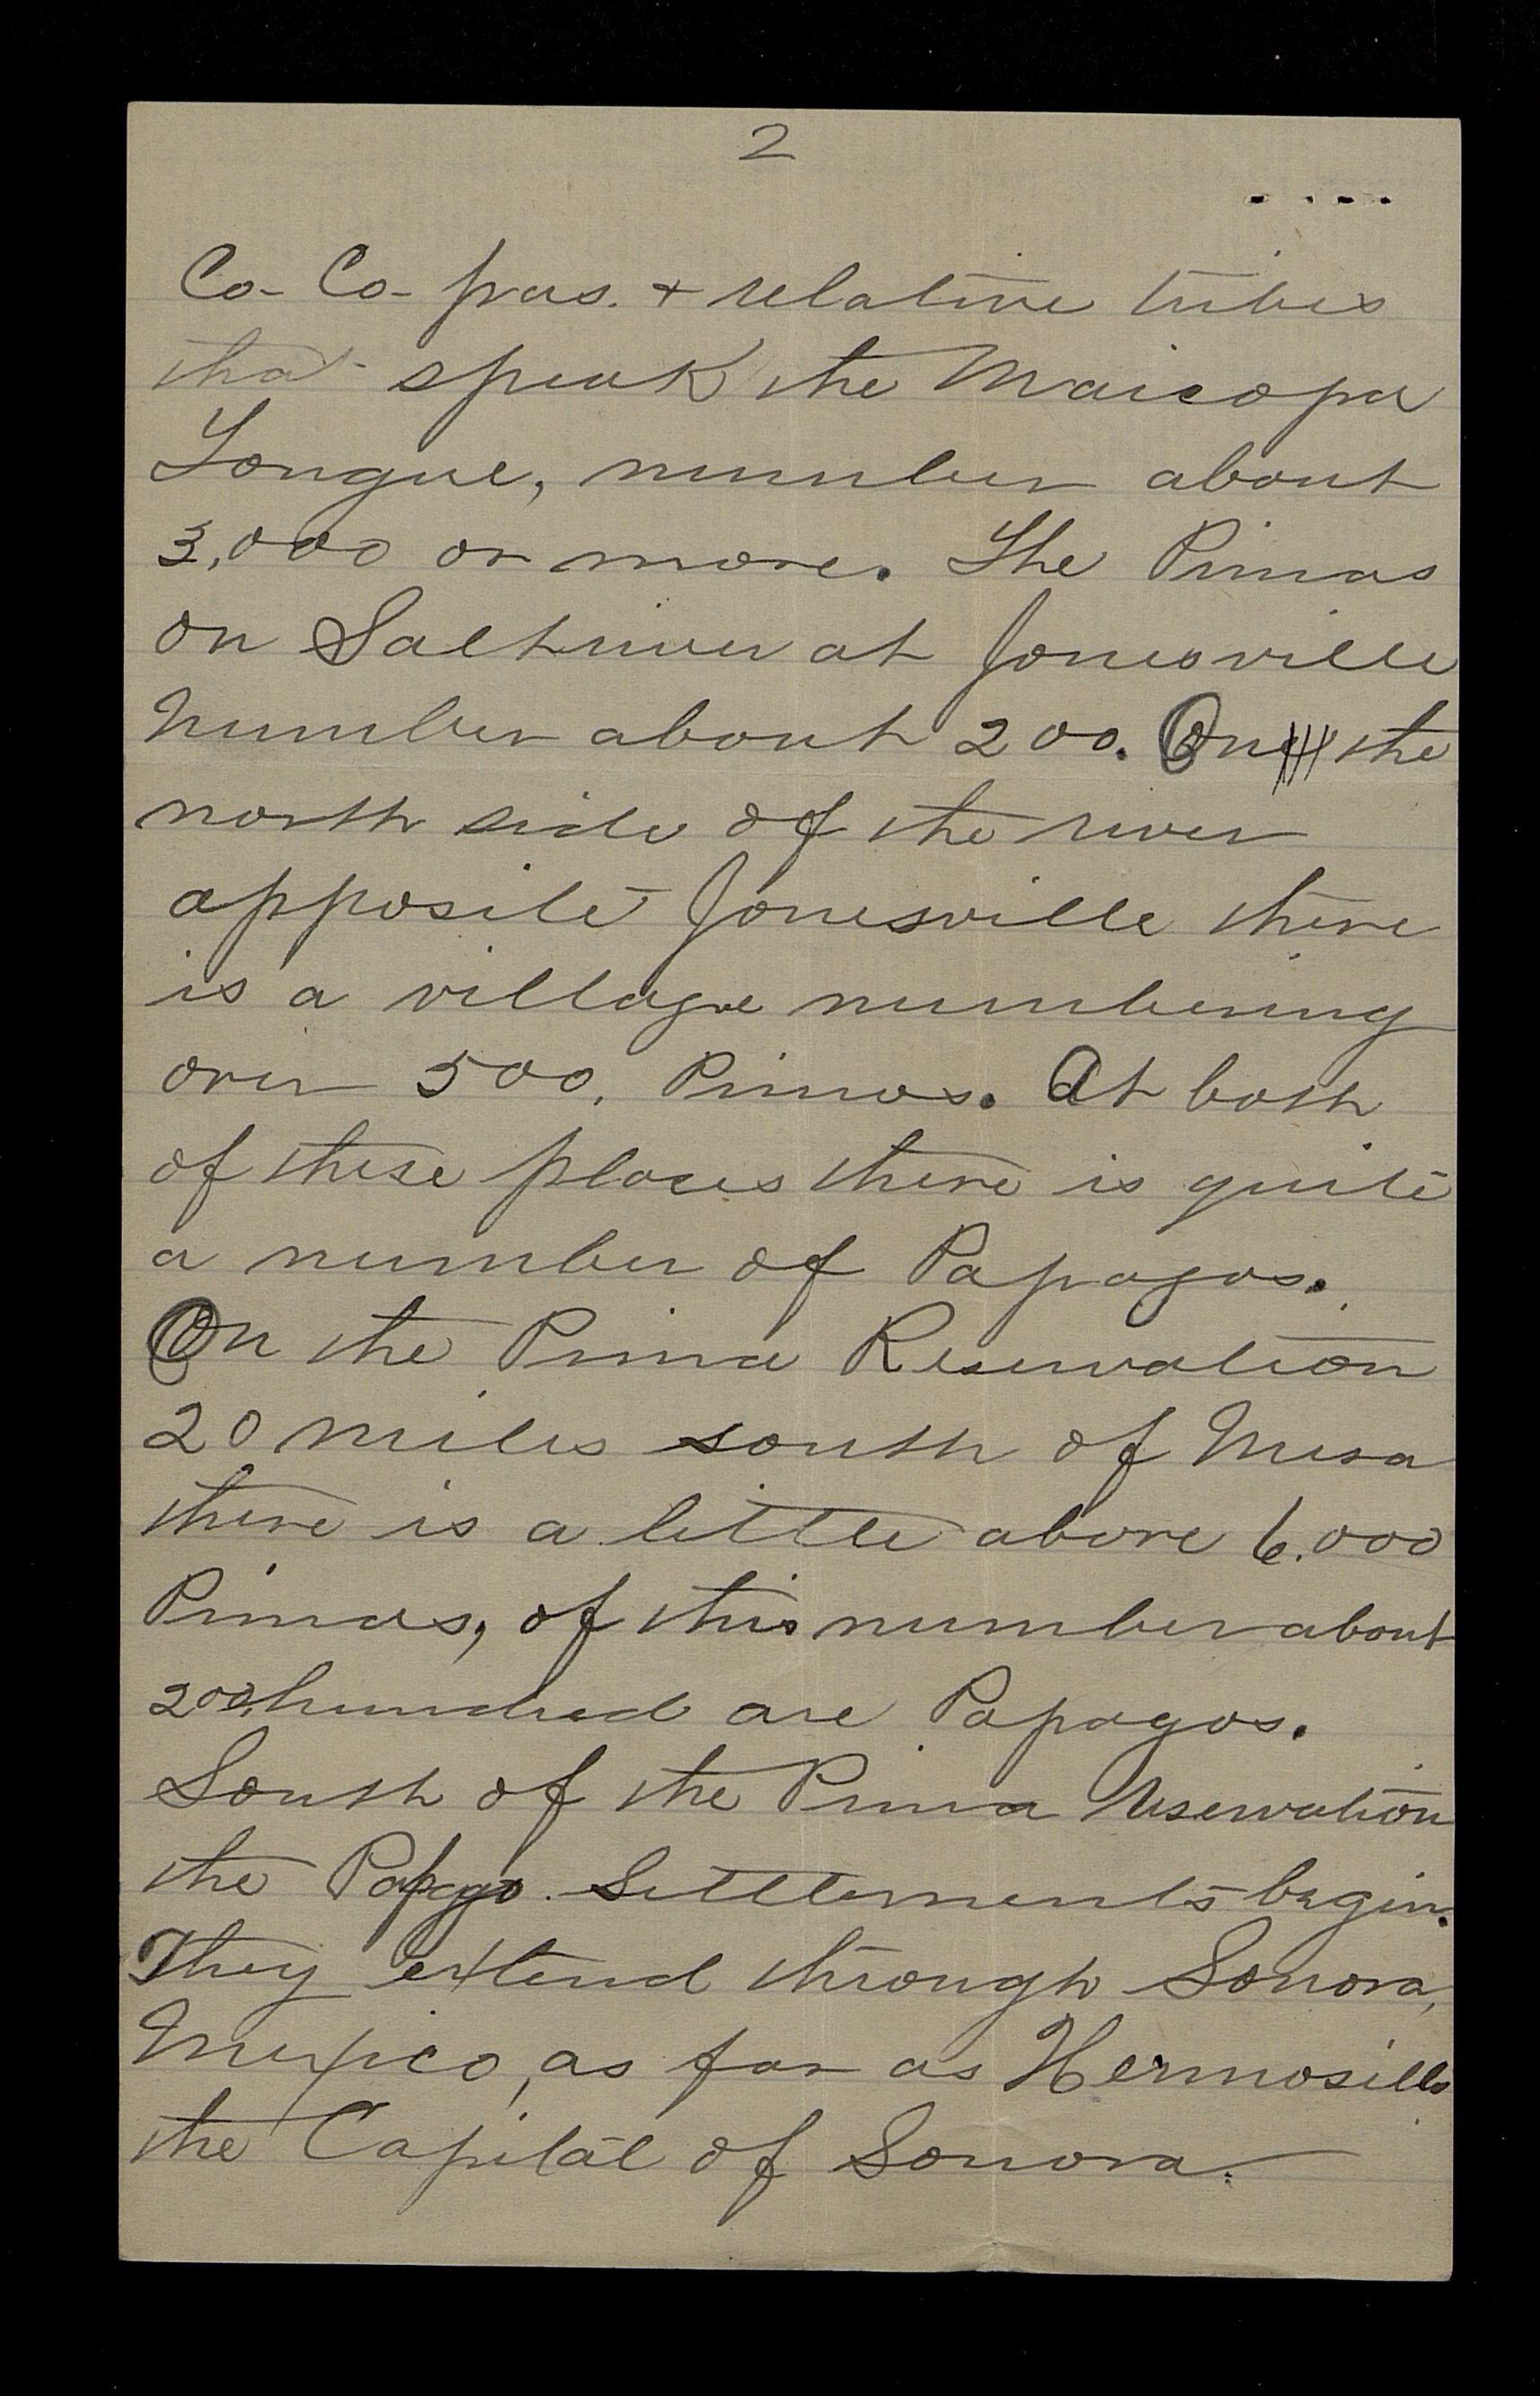 2
Co-Co-pas. + relative tribes
that speak the Maricopa
Tongue, number about
3,000 or more. The Pimas
on Saltriver at Jonesville
Number about 200. On the
north side of the river
opposite Jonesville there
is a village numbering
over 500, Pimas. At both
of these places there is quite
a number of Papagos.
On the Pima Reservation
20 miles south of Mesa
there is a little above 6.000
Pimas, of this number about
200, hundred are Papagos.
South of the Pima reservation
the Papago Settlements begin.
They extend through Sonora,
Mexico, as far as Hermosillo
the Capital of Sonora.